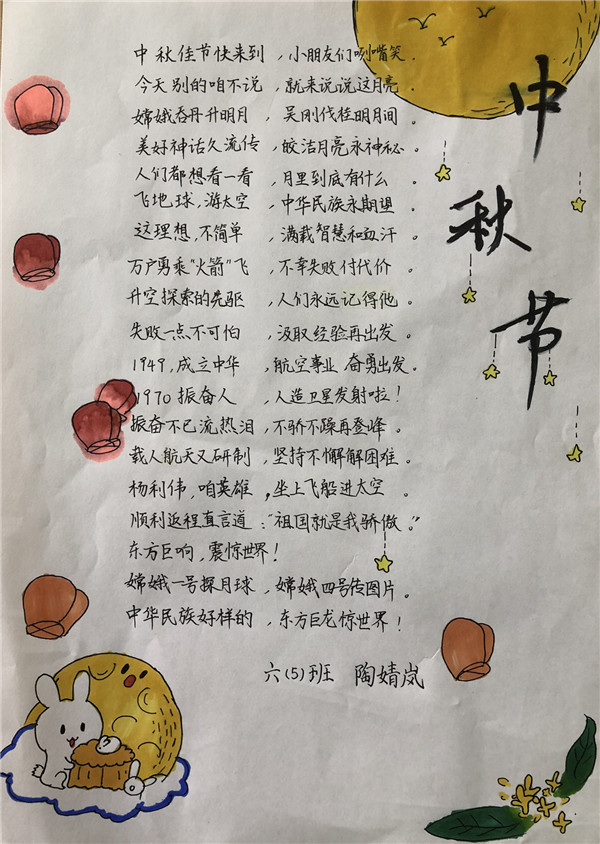 中秋节
中秋佳节快来到，小朋友们咧嘴笑.
今天别的咱不说，就来说说这月亮.
嫦娥吞丹升明月，吴刚伐桂明月间。
美好神话久流传，皎洁月亮永神秘。
人们都想看一看，月里到底有什么。
飞地球，游太空，中华民族永期望。
这理想，不简单，满载智慧和血汗。
万户勇乘“火箭”飞，不幸失败付代价。
升空探索的先驱，人们永远记得他。
失败一点不可怕，汲取经验再出发。
1949，成立中华，航空事业奋勇出发.
1970振奋人，人造卫星发射啦！
振奋不已流热泪，不骄不躁再登峰。
载人航天又研制，坚持不懈解困难。
杨利伟，咱英雄，坐上飞船进太空。
顺利返程直言道：“祖国就是我骄傲。”
东方巨响，震惊世界！
嫦娥一号探月球，嫦娥四号传图片。
中华民族好样的，东方巨龙惊世界！
六(5)班 陶婧岚